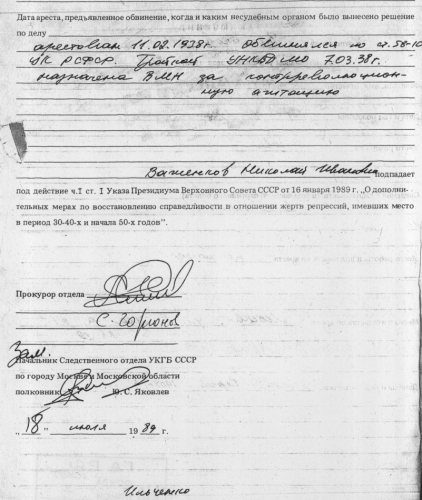 Дата ареста, предъявленное обвинение, когда и каким несудебным органом было вынесено решение
по делу
арестован 11.02.1938г. обвинялся по ст. 58-10
УК РСФСР. Тройкой УНКВД МО 7.03.38г.
назначена ВМН за контрреволюцион-
ную агитацию
Важенков Николай Иванович подпадает
под действие ч.I ст. I Указа Президиума Верховного Совета СССР от 16 января 1989 г. „О дополни-
тельных мерах по восстановлению справедливости в отношении жертв репрессий, имевших место
в период 30-40-х и начала 50-х годов”.
Прокурор отдела
Зам.
Начальник Следственного отдела УКГБ СССР
по городу Москве и Московской области
полковник Ю. С. Яковлев
„18” июля 1989 г.
Ильченко